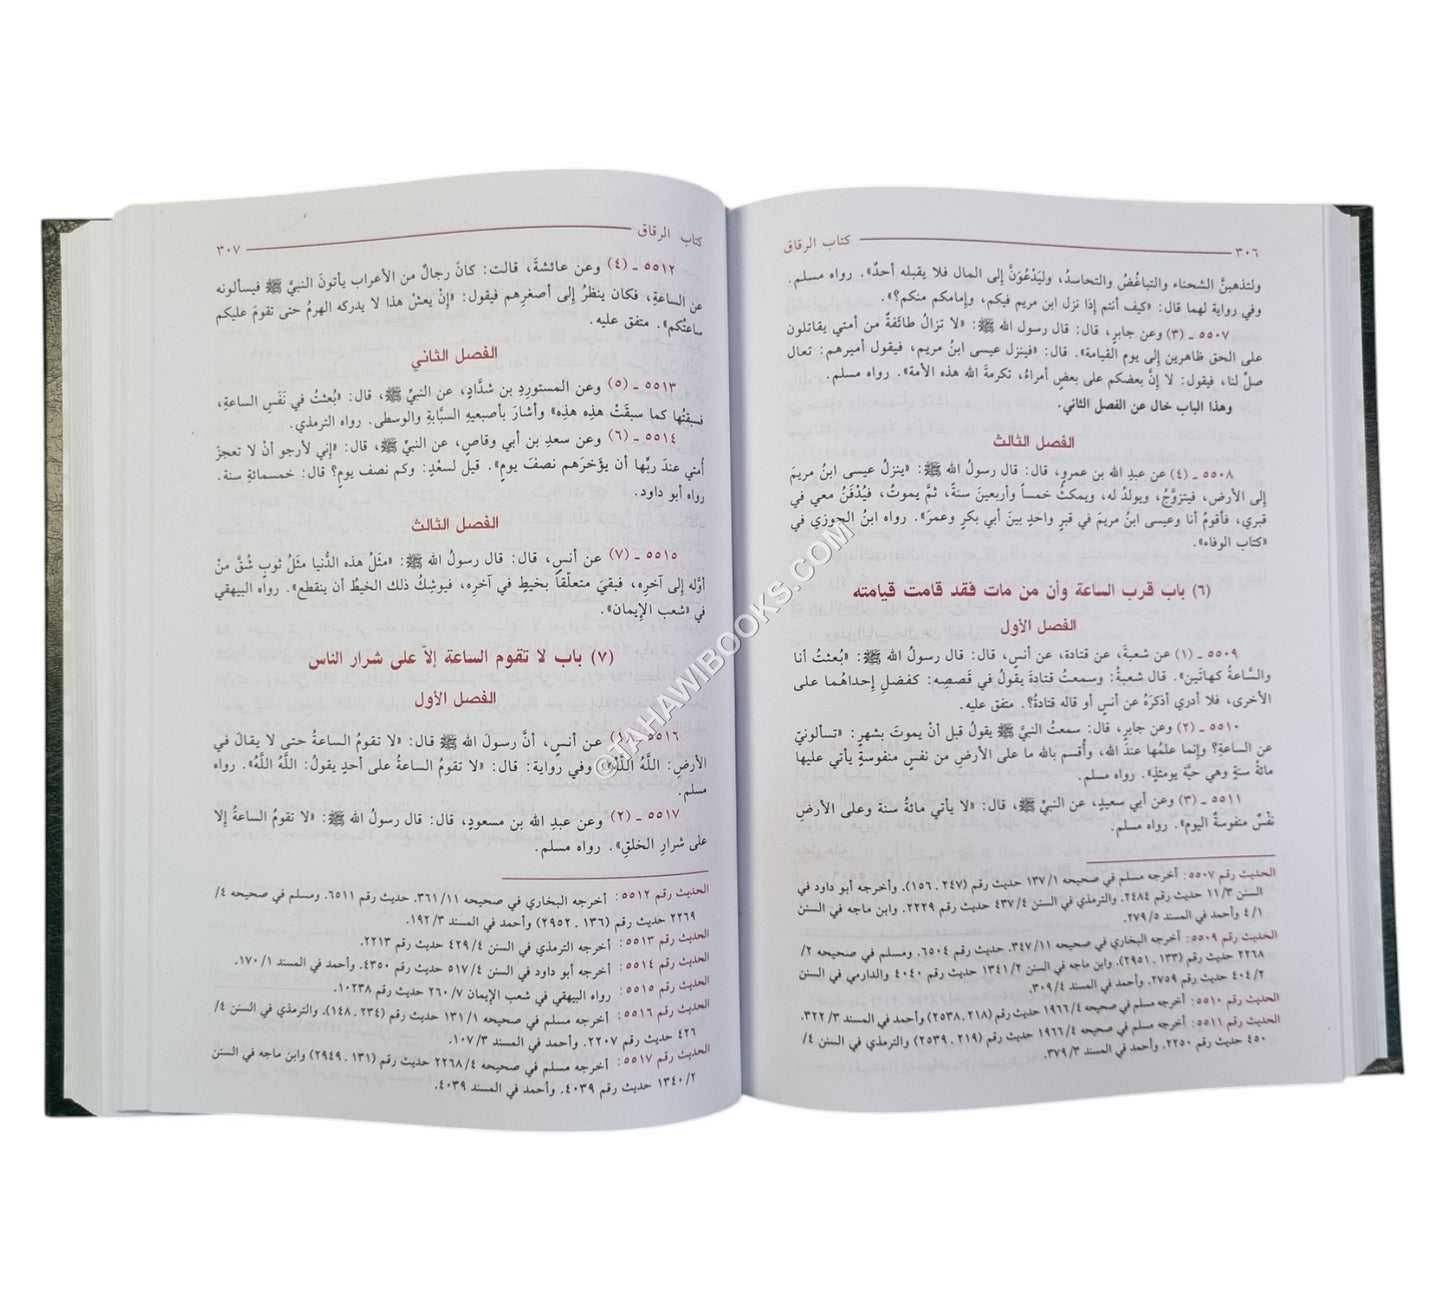 ٣٠٦ كتاب الرقاق
ولتذهبنَّ الشحناء والتباغُضُ والتحاسدُ، وليَدْعُوَنَّ إلى المال فلا يقبله أحدٌ». رواه مسلم.
وفي رواية لهما قال: «كيف أنتم إذا نزل ابن مريم فيكم، وإمامكم منكم؟».
٥٥٠٧ ـ (٣) وعن جابرٍ، قال: قال رسول الله ﷺ: «لا تزالُ طائفةٌ من أمتي يقاتلون
على الحق ظاهرين إلى يوم القيامة». قال: «فينزل عيسى ابنُ مريم، فيقول أميرهم: تعال
صلِّ لنا، فيقول: لا إنَّ بعضكم على بعضٍ أمراءُ، تكرمةَ الله هذه الأمة». رواه مسلم.
وهذا الباب خال عن الفصل الثاني.
الفصل الثالث
٥٥٠٨ ـ (٤) عن عبدِ الله بن عمرو، قال: قال رسولُ الله ﷺ: «ينزلُ عيسى ابنُ مريمَ
إلى الأرض، فيتزوَّجُ، ويولدُ له، ويمكثُ خمساً وأربعينَ سنةً، ثمَّ يموتُ، فيُدْفَنُ معي في
قبري، فأقومُ أنا وعيسى ابنُ مريمَ في قبرٍ واحدٍ بينَ أبي بكرٍ وعمرَ». رواه ابنُ الجوزي في
«كتاب الوفاء».
(٦) باب قرب الساعة وأن من مات فقد قامت قيامته
الفصل الأول
٥٥٠٩ ـ (١) عن شعبةَ، عن قتادة، عن أنسٍ، قال: قال رسولُ الله ﷺ: «بُعثتُ أنا
والسَّاعةُ كهاتَينِ». قال شعبةُ: وسمعتُ قتادةَ يقولُ في قَصصِه: كفضلِ إحداهُما على
الأخرى، فلا أدري أذكرَهُ عن أنسٍ أو قاله قتادةُ؟. متفق عليه.
٥٥١٠ ـ (٢) وعن جابرٍ، قال: سمعتُ النبيَّ ﷺ يقولُ قبل أنْ يموتَ بشهرٍ: «تسألونيَ
عن الساعةِ؟ وإنما علمُها عندَ الله، وأُقسم بالله ما على الأرضِ من نفسٍ منفوسةٍ يأتي عليها
مائةُ سنةٍ وهي حيَّة يومئذٍ». رواه مسلم.
٥٥١١ ـ (٣) وعن أبي سعيدٍ، عن النبيِّ ﷺ، قال: «لا يأتي مائةُ سنة وعلى الأرضِ
نفْسٌ منفوسةٌ اليوم». رواه مسلم.
الحديث رقم ٥٥٠٧: أخرجه مسلم في صحيحه ١/١٣٧ حديث رقم (٢٤٧ . ١٥٦). وأخرجه أبو داود في
السنن ٣/١١ حديث رقم ٢٤٨٤. والترمذي في السنن ٤/٤٣٧ حديث رقم ٢٢٢٩. وابن ماجه في السنن
١/٤ وأحمد في المسند ٥/٢٧٩.
الحديث رقم ٥٥٠٩: أخرجه البخاري في صحيحه ١١/٣٤٧. حديث رقم ٦٥٠٤. ومسلم في صحيحه ٢/
٢٢٦٨ حديث رقم (١٣٣ . ٢٩٥١). وابن ماجه في السنن ٢/١٣٤١ حديث رقم ٤٠٤٠ والدارمي في السنن
٢/٤٠٤ حديث رقم ٢٧٥٩. وأحمد في المسند ٤/٣٠٩.
الحديث رقم ٥٥١٠: أخرجه مسلم في صحيحه ٤/١٩٦٦ حديث رقم (٢١٨ . ٢٥٣٨) وأحمد في المسند ٣/٣٢٢.
الحديث رقم ٥٥١١: أخرجه مسلم في صحيحه ٤/١٩٦٦ حديث رقم (٢١٩ . ٢٥٣٩) والترمذي في السنن ٤/
٤٥٠ حديث رقم ٢٢٥٠. وأحمد في المسند ٣/٣٧٩.
كتاب الرقاق ٣٠٧
٥٥١٢ ـ (٤) وعن عائشةَ، قالت: كانَ رجالٌ من الأعراب يأتونَ النبيَّ ﷺ فيسألونه
عن الساعةِ، فكان ينظرُ إلى أصغرِهم فيقول: «إنْ يعشْ هذا لا يدركه الهرمُ حتى تقومَ عليكم
ساعتُكم». متفق عليه.
الفصل الثاني
٥٥١٣ ـ (٥) وعن المستورِدِ بن شدَّادٍ، عن النبيِّ ﷺ، قال: «بُعثتُ في نَفَسِ الساعةِ،
فسبقتُها كما سبقَتْ هذِه هذِه» وأشارَ بأصبعيهِ السبَّابةِ والوسطى. رواه الترمذي.
٥٥١٤ ـ (٦) وعن سعدِ بن أبي وقاصٍ، عن النبيِّ ﷺ، قال: «إني لأرجو أنْ لا تعجزَ
أُمتي عندَ ربِّها أن يؤَخرَهم نصفَ يومٍ». قيل لسعْدٍ: وكم نصف يومٍ؟ قال: خمسمائةِ سنة.
رواه أبو داود.
الفصل الثالث
٥٥١٥ ـ (٧) عن أنسٍ، قال: قال رسولُ الله ﷺ: «مثلُ هذه الدُّنيا مثلُ ثوبٍ شُقَّ منْ
أوَّله إلى آخرِه، فبقيَ متعلّقاً بخيطٍ في آخرِه، فيوشِكُ ذلك الخيطُ أن ينقطع». رواه البيهقي
في «شعب الإيمان».
(٧) باب لا تقوم الساعة إلاّ على شرار الناس
الفصل الأول
٥٥١٦ ـ (١) عن أنسٍ، أنَّ رسولَ الله ﷺ قال: «لا تقومُ الساعةُ حتى لا يقالَ في
الأرضِ: اللَّهُ اللَّهُ». وفي رواية: قال: «لا تقومُ الساعةُ على أحدٍ يقولُ: اللَّهُ اللَّهُ». رواه
مسلم.
٥٥١٧ ـ (٢) وعن عبدِ الله بن مسعودٍ، قال: قال رسولُ الله ﷺ: «لا تقومُ الساعةُ إلا
على شرارِ الخلقِ». رواه مسلم.
الحديث رقم ٥٥١٢: أخرجه البخاري في صحيحه ١١/٣٦١. حديث رقم ٦٥١١. ومسلم في صحيحه ٤/
٢٢٦٩ حديث رقم (١٣٦ . ٢٩٥٢) وأحمد في المسند ٣/١٩٢.
الحديث رقم ٥٥١٣: أخرجه الترمذي في السنن ٤/٤٢٩ حديث رقم ٢٢١٣.
الحديث رقم ٥٥١٤: أخرجه أبو داود في السنن ٤/٥١٧ حديث رقم ٤٣٥٠. وأحمد في المسند ١/١٧٠.
الحديث رقم ٥٥١٥: رواه البيهقي في شعب الإيمان ٧/٢٦٠ حديث رقم ١٠٢٣٨.
الحديث رقم ٥٥١٦: أخرجه مسلم في صحيحه ١/١٣١ حديث رقم (٢٣٤ . ١٤٨). والترمذي في السنن ٤/
٤٢٦ حديث رقم ٢٢٠٧. وأحمد في المسند ٣/١٠٧.
الحديث رقم ٥٥١٧: أخرجه مسلم في صحيحه ٤/٢٢٦٨ حديث رقم (١٣١ . ٢٩٤٩) وابن ماجه في السنن
٢/١٣٤٠ حديث رقم ٤٠٣٩. وأحمد في المسند ٤٠٣٩.
©TAHAWIBOOKS.COM